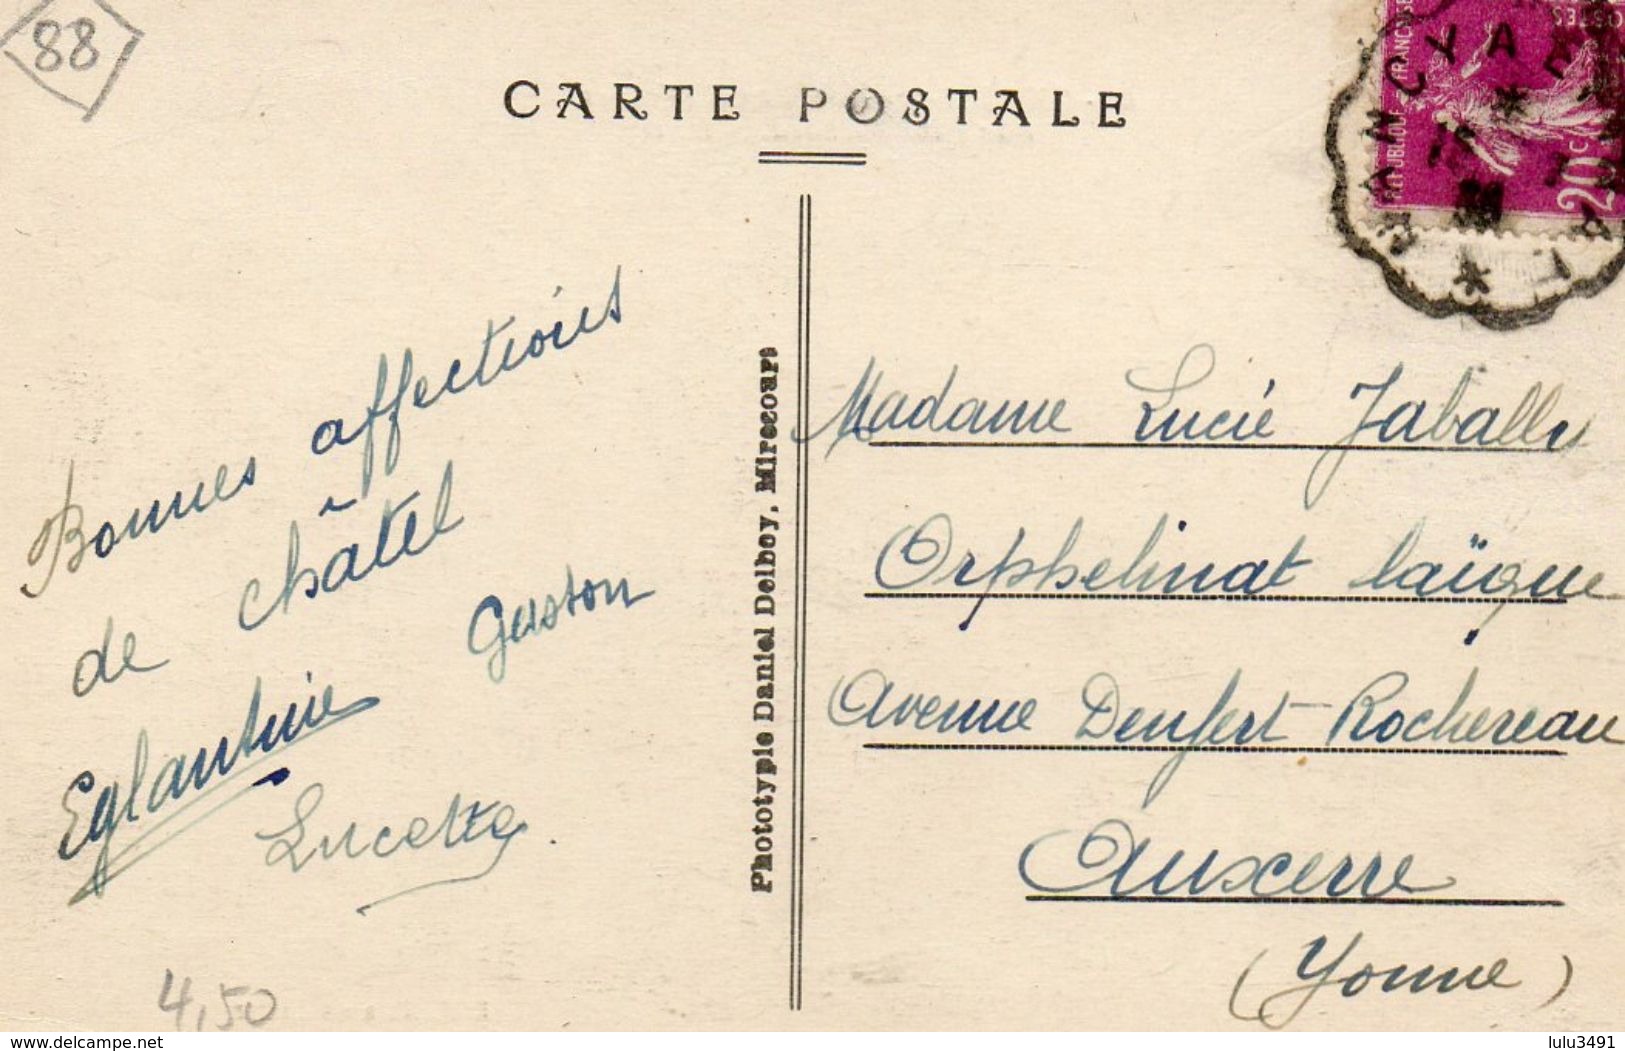 88
CARTE POSTALE
RÉPUBLIQUE FRANÇAISE
POSTES
20 C
Bonnes affections
de châtel
Gaston
Eglantine
Lucette
4,50
Phototypie Daniel Delboy, Mirecourt
Madame Lucie Jaballes
Orphelinat laïque
Avenue Denfert-Rochereau
Auxerre
(Yonne)
delcampe.net
lulu3491